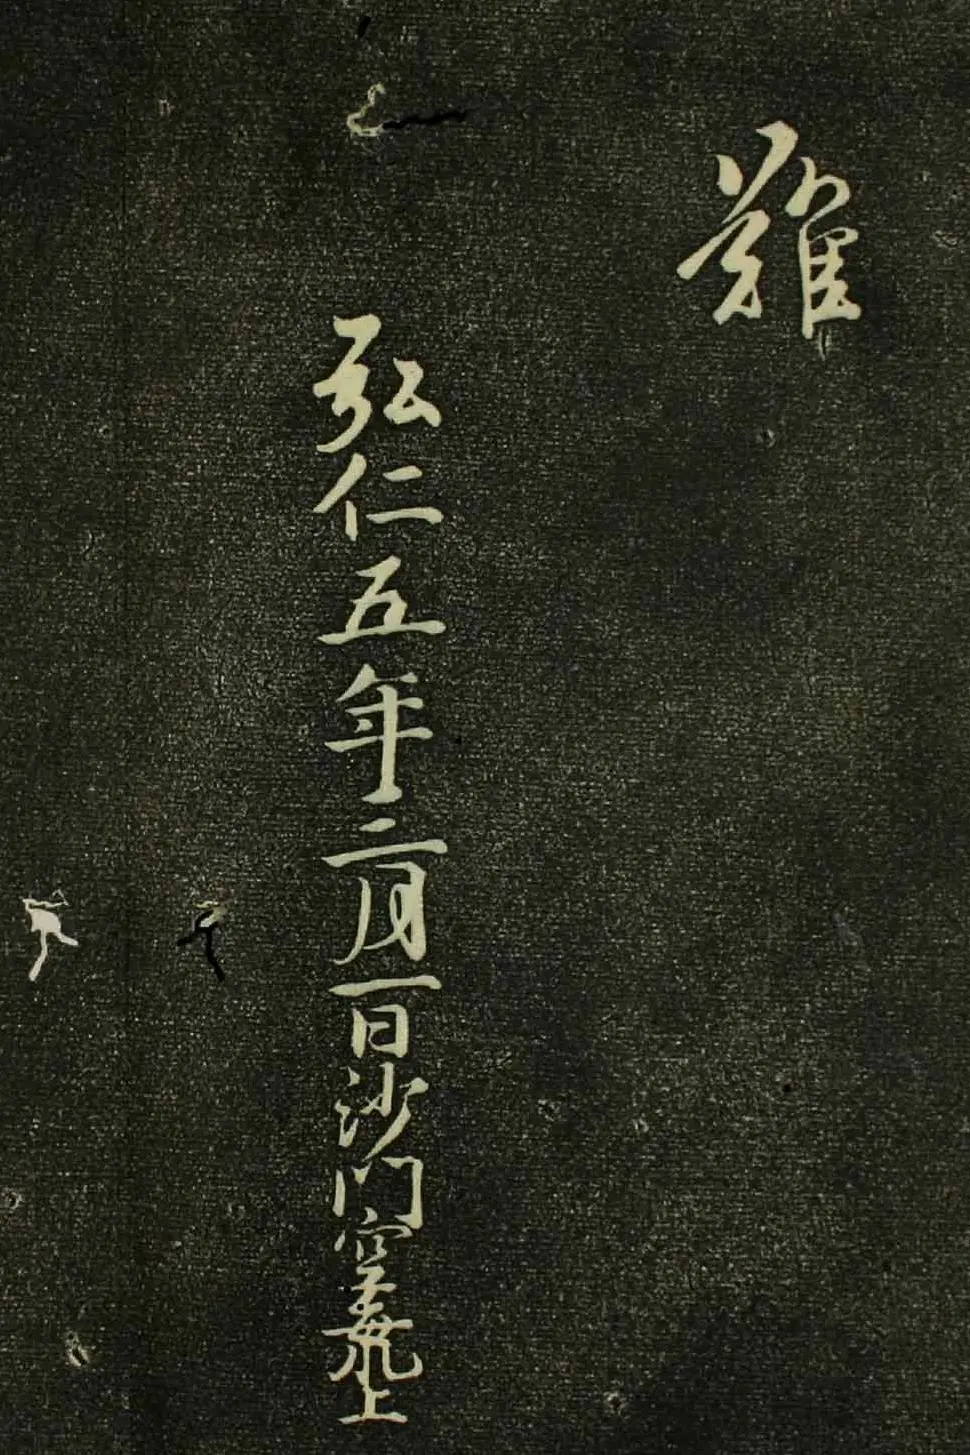 難
弘仁五年三月一日沙門空海上